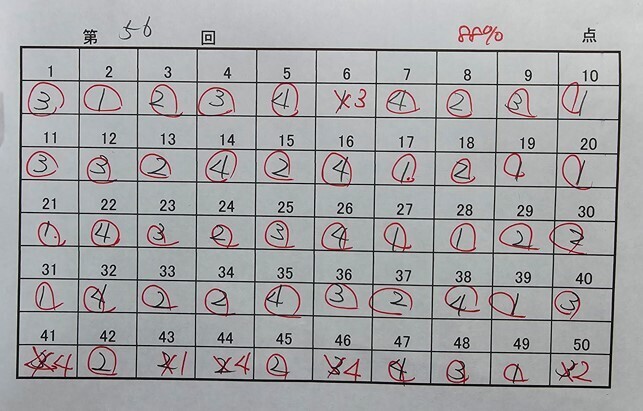 第 56 回 88% 点
1 2 3 4 5 6 7 8 9 10
3 1 2 3 4 3 4 2 3 1
11 12 13 14 15 16 17 18 19 20
3 3 2 4 2 4 1 2 1 1
21 22 23 24 25 26 27 28 29 30
1 4 3 2 3 4 1 1 2 3
31 32 33 34 35 36 37 38 39 40
1 4 2 2 4 3 2 4 1 3
41 42 43 44 45 46 47 48 49 50
4 2 1 4 2 4 4 3 1 2